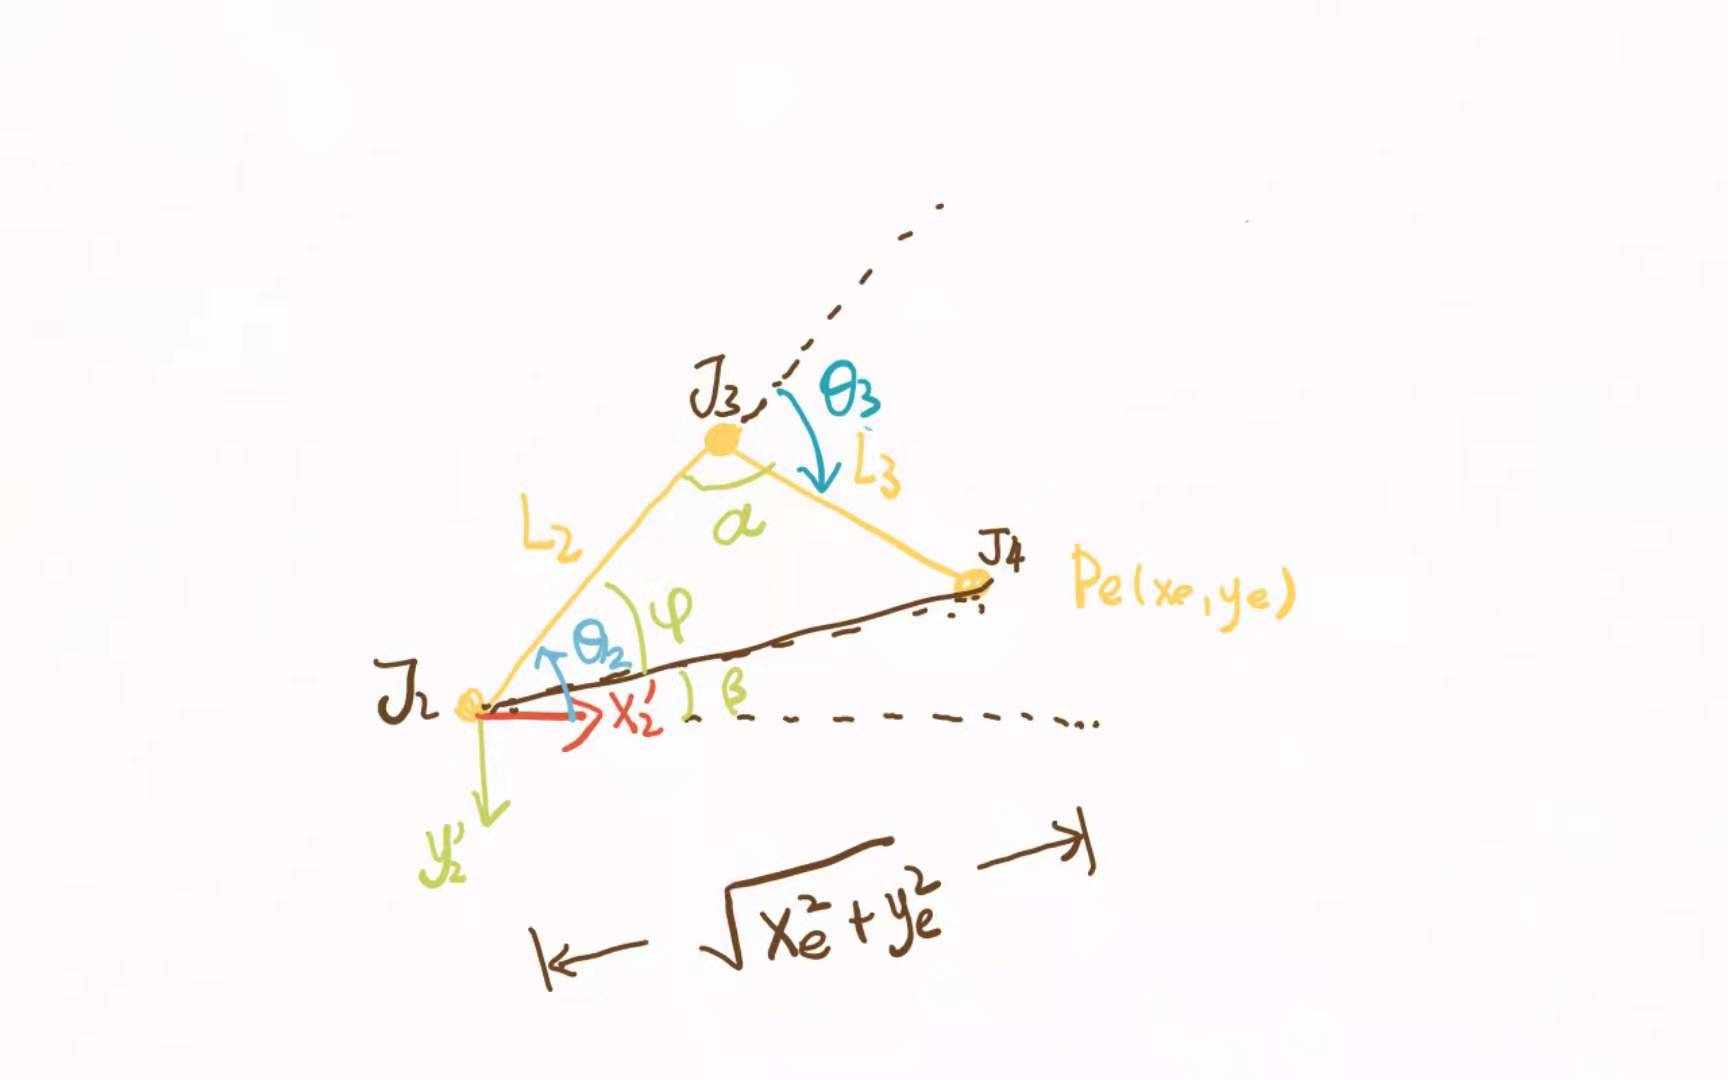 J₃
θ₃
L₃
L₂
α
J₄
Pe(xe, ye)
φ
θ₂
J₂
β
x₂'
y₂'
√xe² + ye²